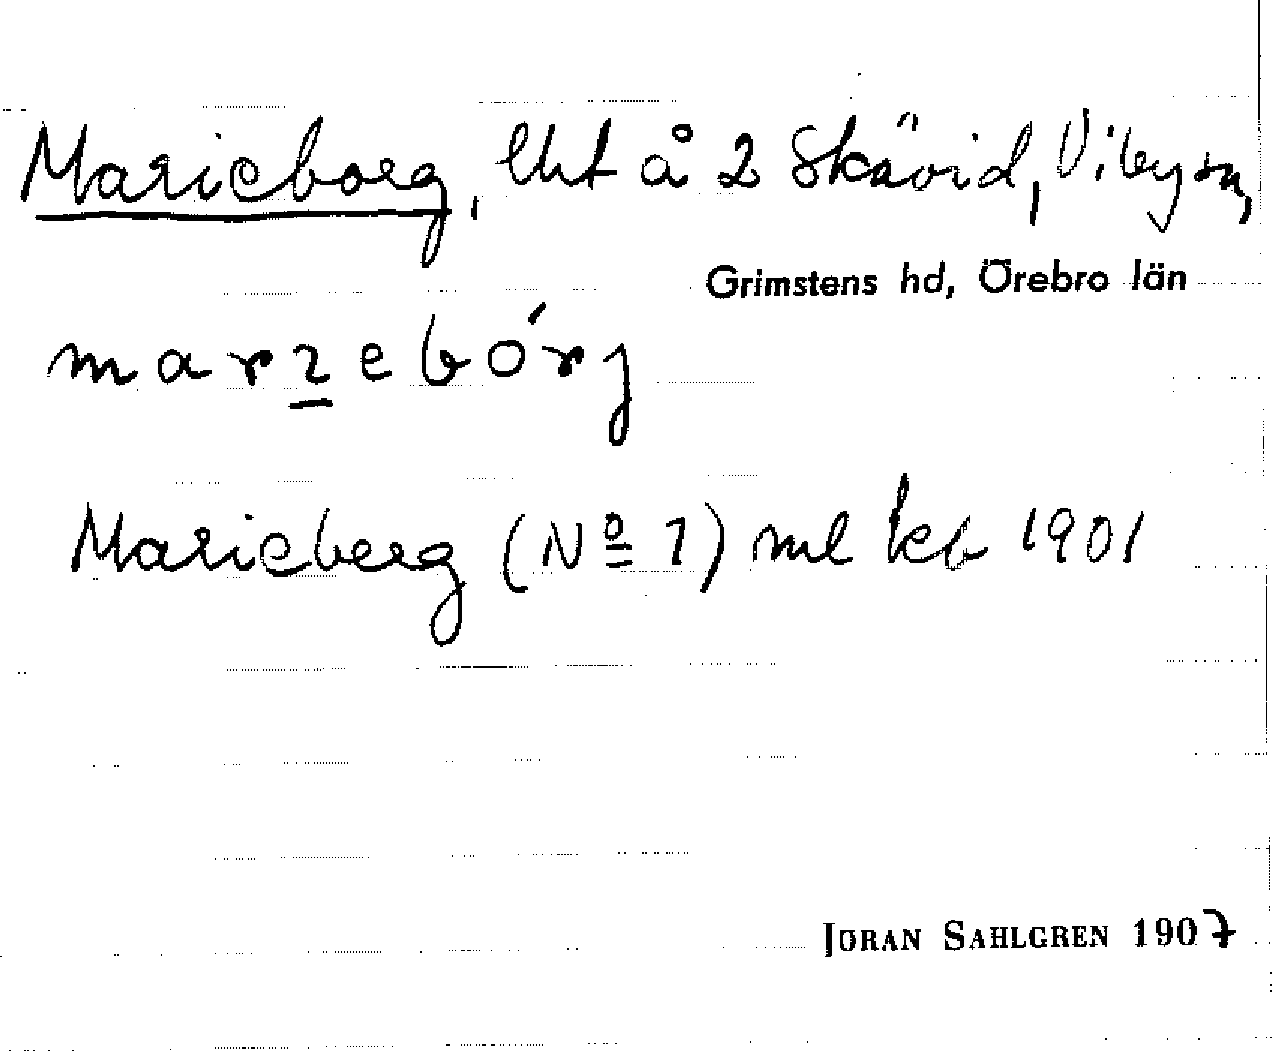 Marieborg, lht å 2 Skävid, Viby sn,
Grimstens hd, Örebro län
marɿ̲ebórj
Marieberg (Nº 1) ml kb 1901
JÖRAN SAHLGREN 1907